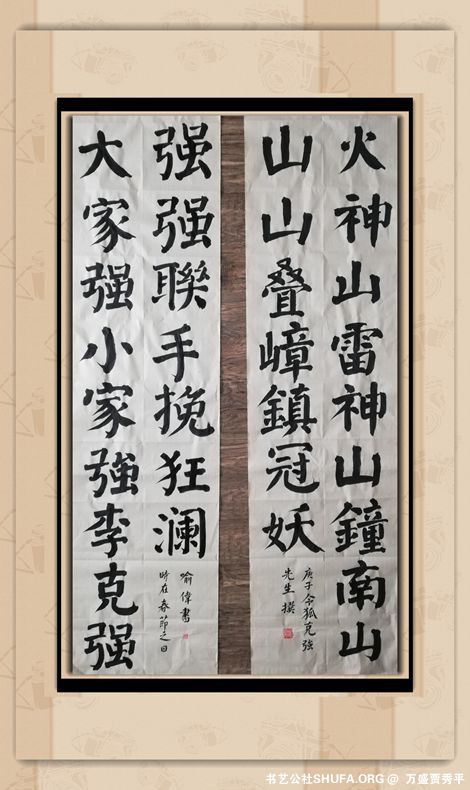 火神山雷神山鐘南山
山山叠嶂鎮冠妖
庚子令狐克強
先生撰
大家强小家強李克强
强强聯手挽狂澜
時在春節之日
喻偉書
书艺公社SHUFA.ORG @ 万盛贾秀平